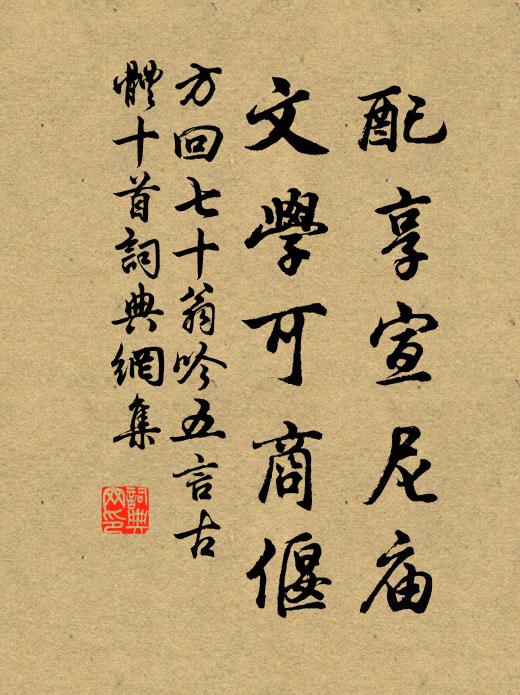 配享宣尼庙
文學可商偃
方回七十翁吟五言古
體十首詞典網集
詞典
网印